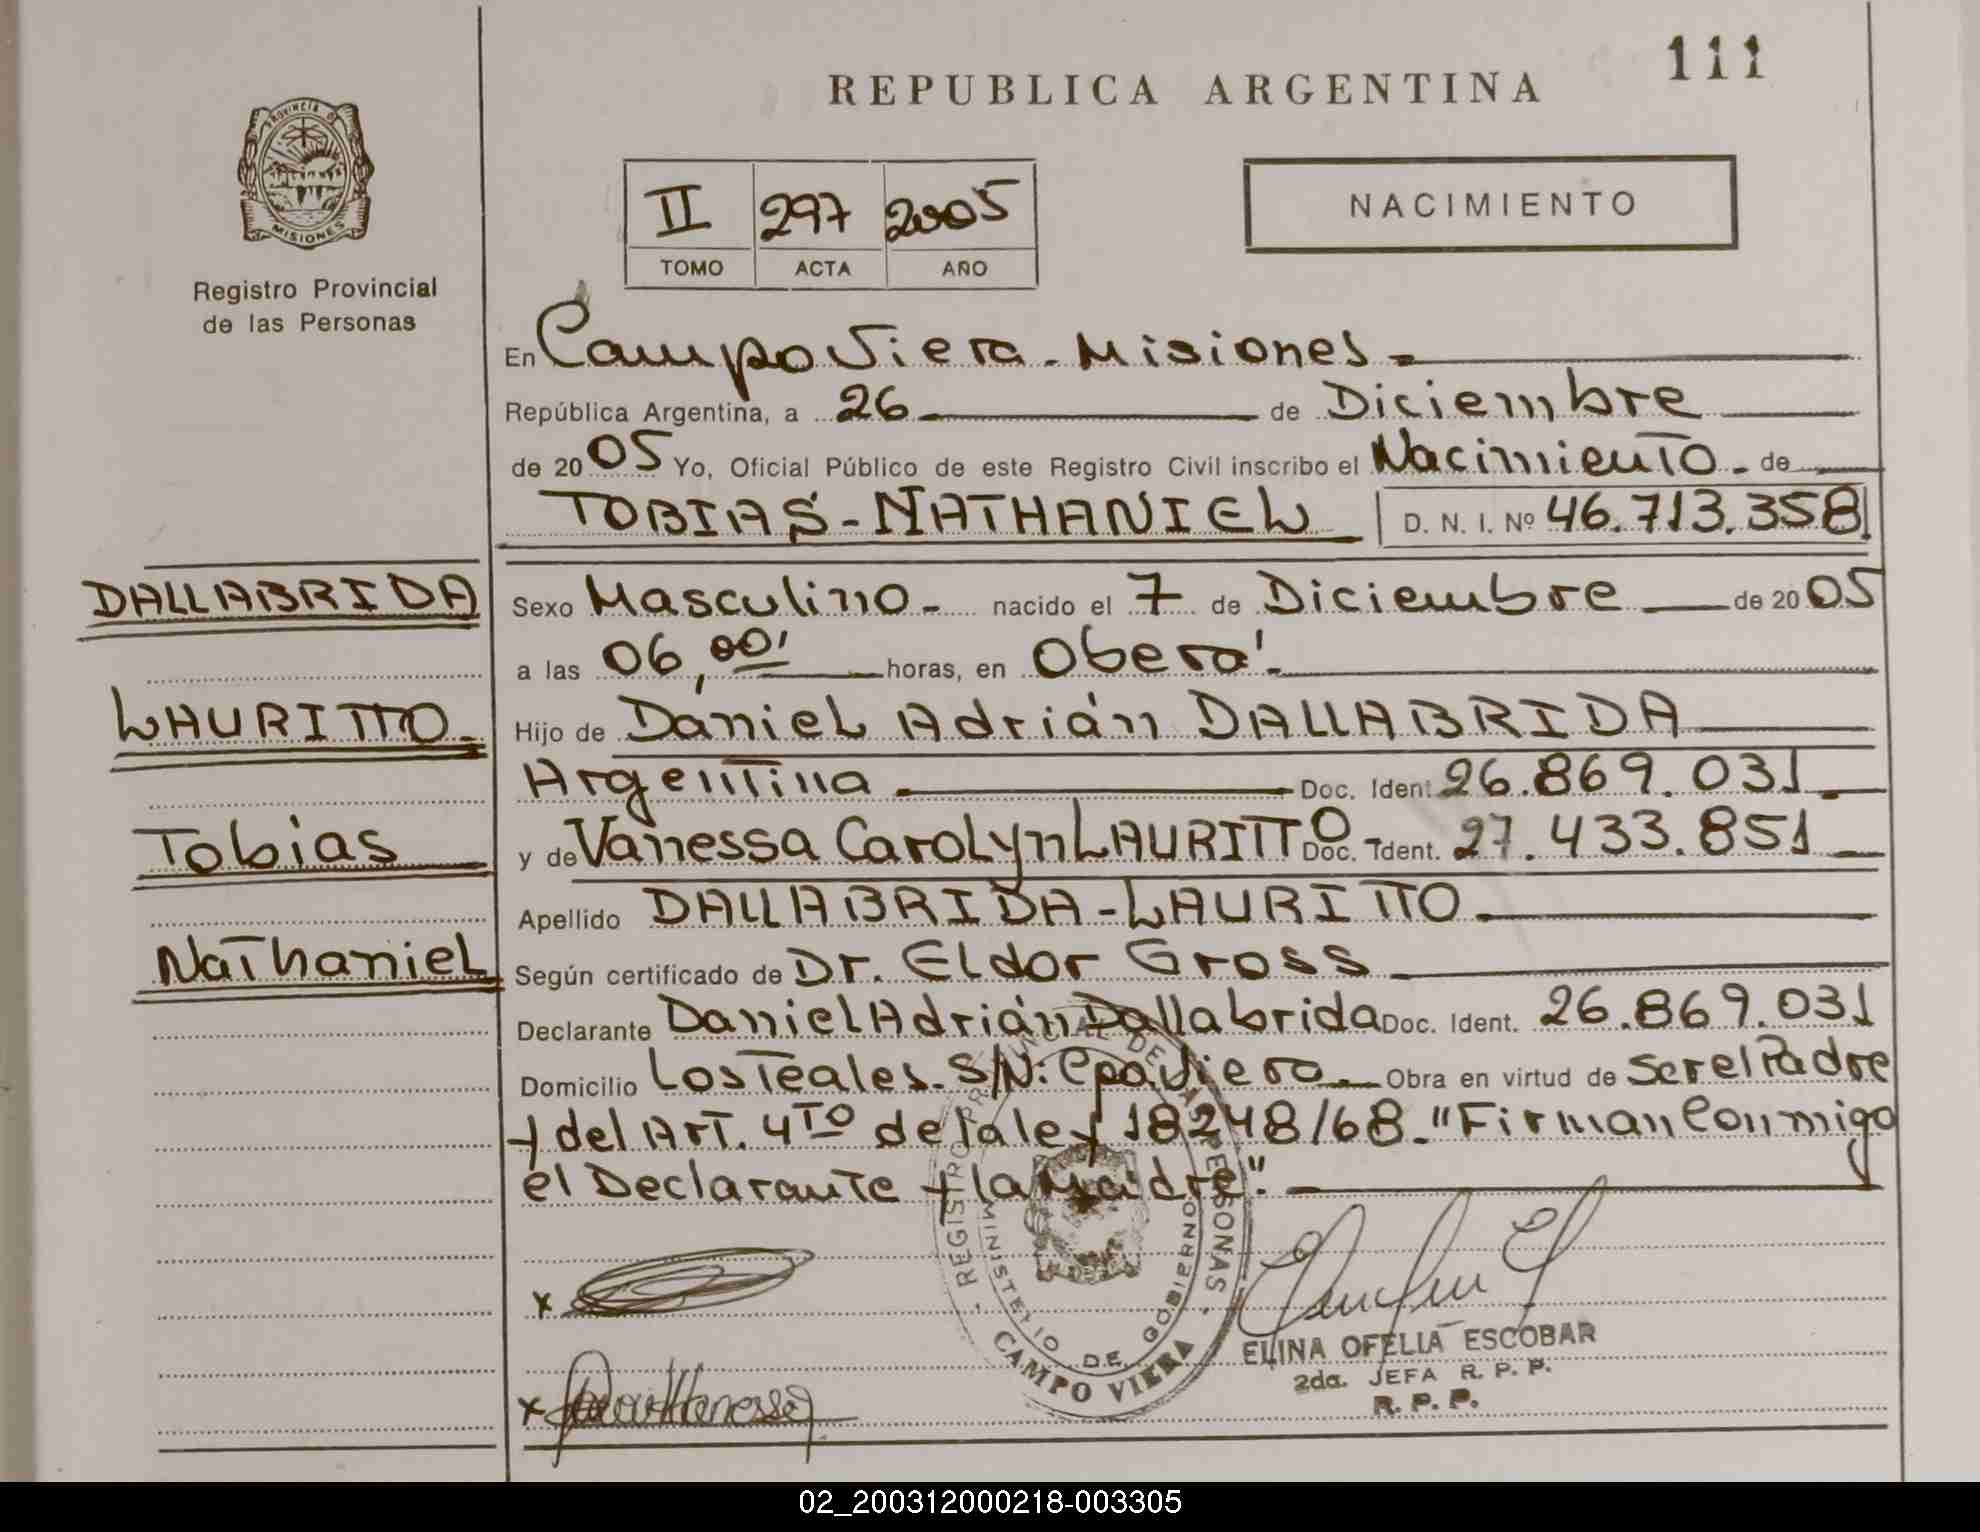 111
REPUBLICA ARGENTINA
PROVINCIA DE
MISIONES
Registro Provincial
de las Personas
II 297 2005
TOMO ACTA AÑO
NACIMIENTO
En Campo Viera - Misiones -
República Argentina, a 26 de Diciembre
de 2005 Yo, Oficial Público de este Registro Civil inscribo el Nacimiento - de
TOBIAS - NATHANIEL D. N. I. Nº 46.713.358
DALLABRIDA
Sexo Masculino - nacido el 7 de Diciembre de 2005
a las 06,00' horas, en Oberá -
LAURITTO -
Hijo de Daniel Adrián DALLABRIDA
Argentina Doc. Ident. 26.869.031
Tobias
y de Vanessa Carolyn LAURITTO Doc. Ident. 27.433.851
Apellido DALLABRIDA - LAURITTO
Nathaniel
Según certificado de Dr. Eldor Gross
Declarante Daniel Adrián Dallabrida Doc. Ident. 26.869.031
Domicilio Los Teales. S/N: Cpo Viera - Obra en virtud de ser el Padre
y del Art. 4TO de la ley 18248/68. "Firman Conmigo
el Declarante y la Madre".
REGISTRO PROVINCIAL DE LAS PERSONAS
MINISTERIO DE GOBIERNO
CAMPO VIERA
x
x
ELINA OFELIA ESCOBAR
2da. JEFA R. P. P.
R. P. P.
02_200312000218-003305